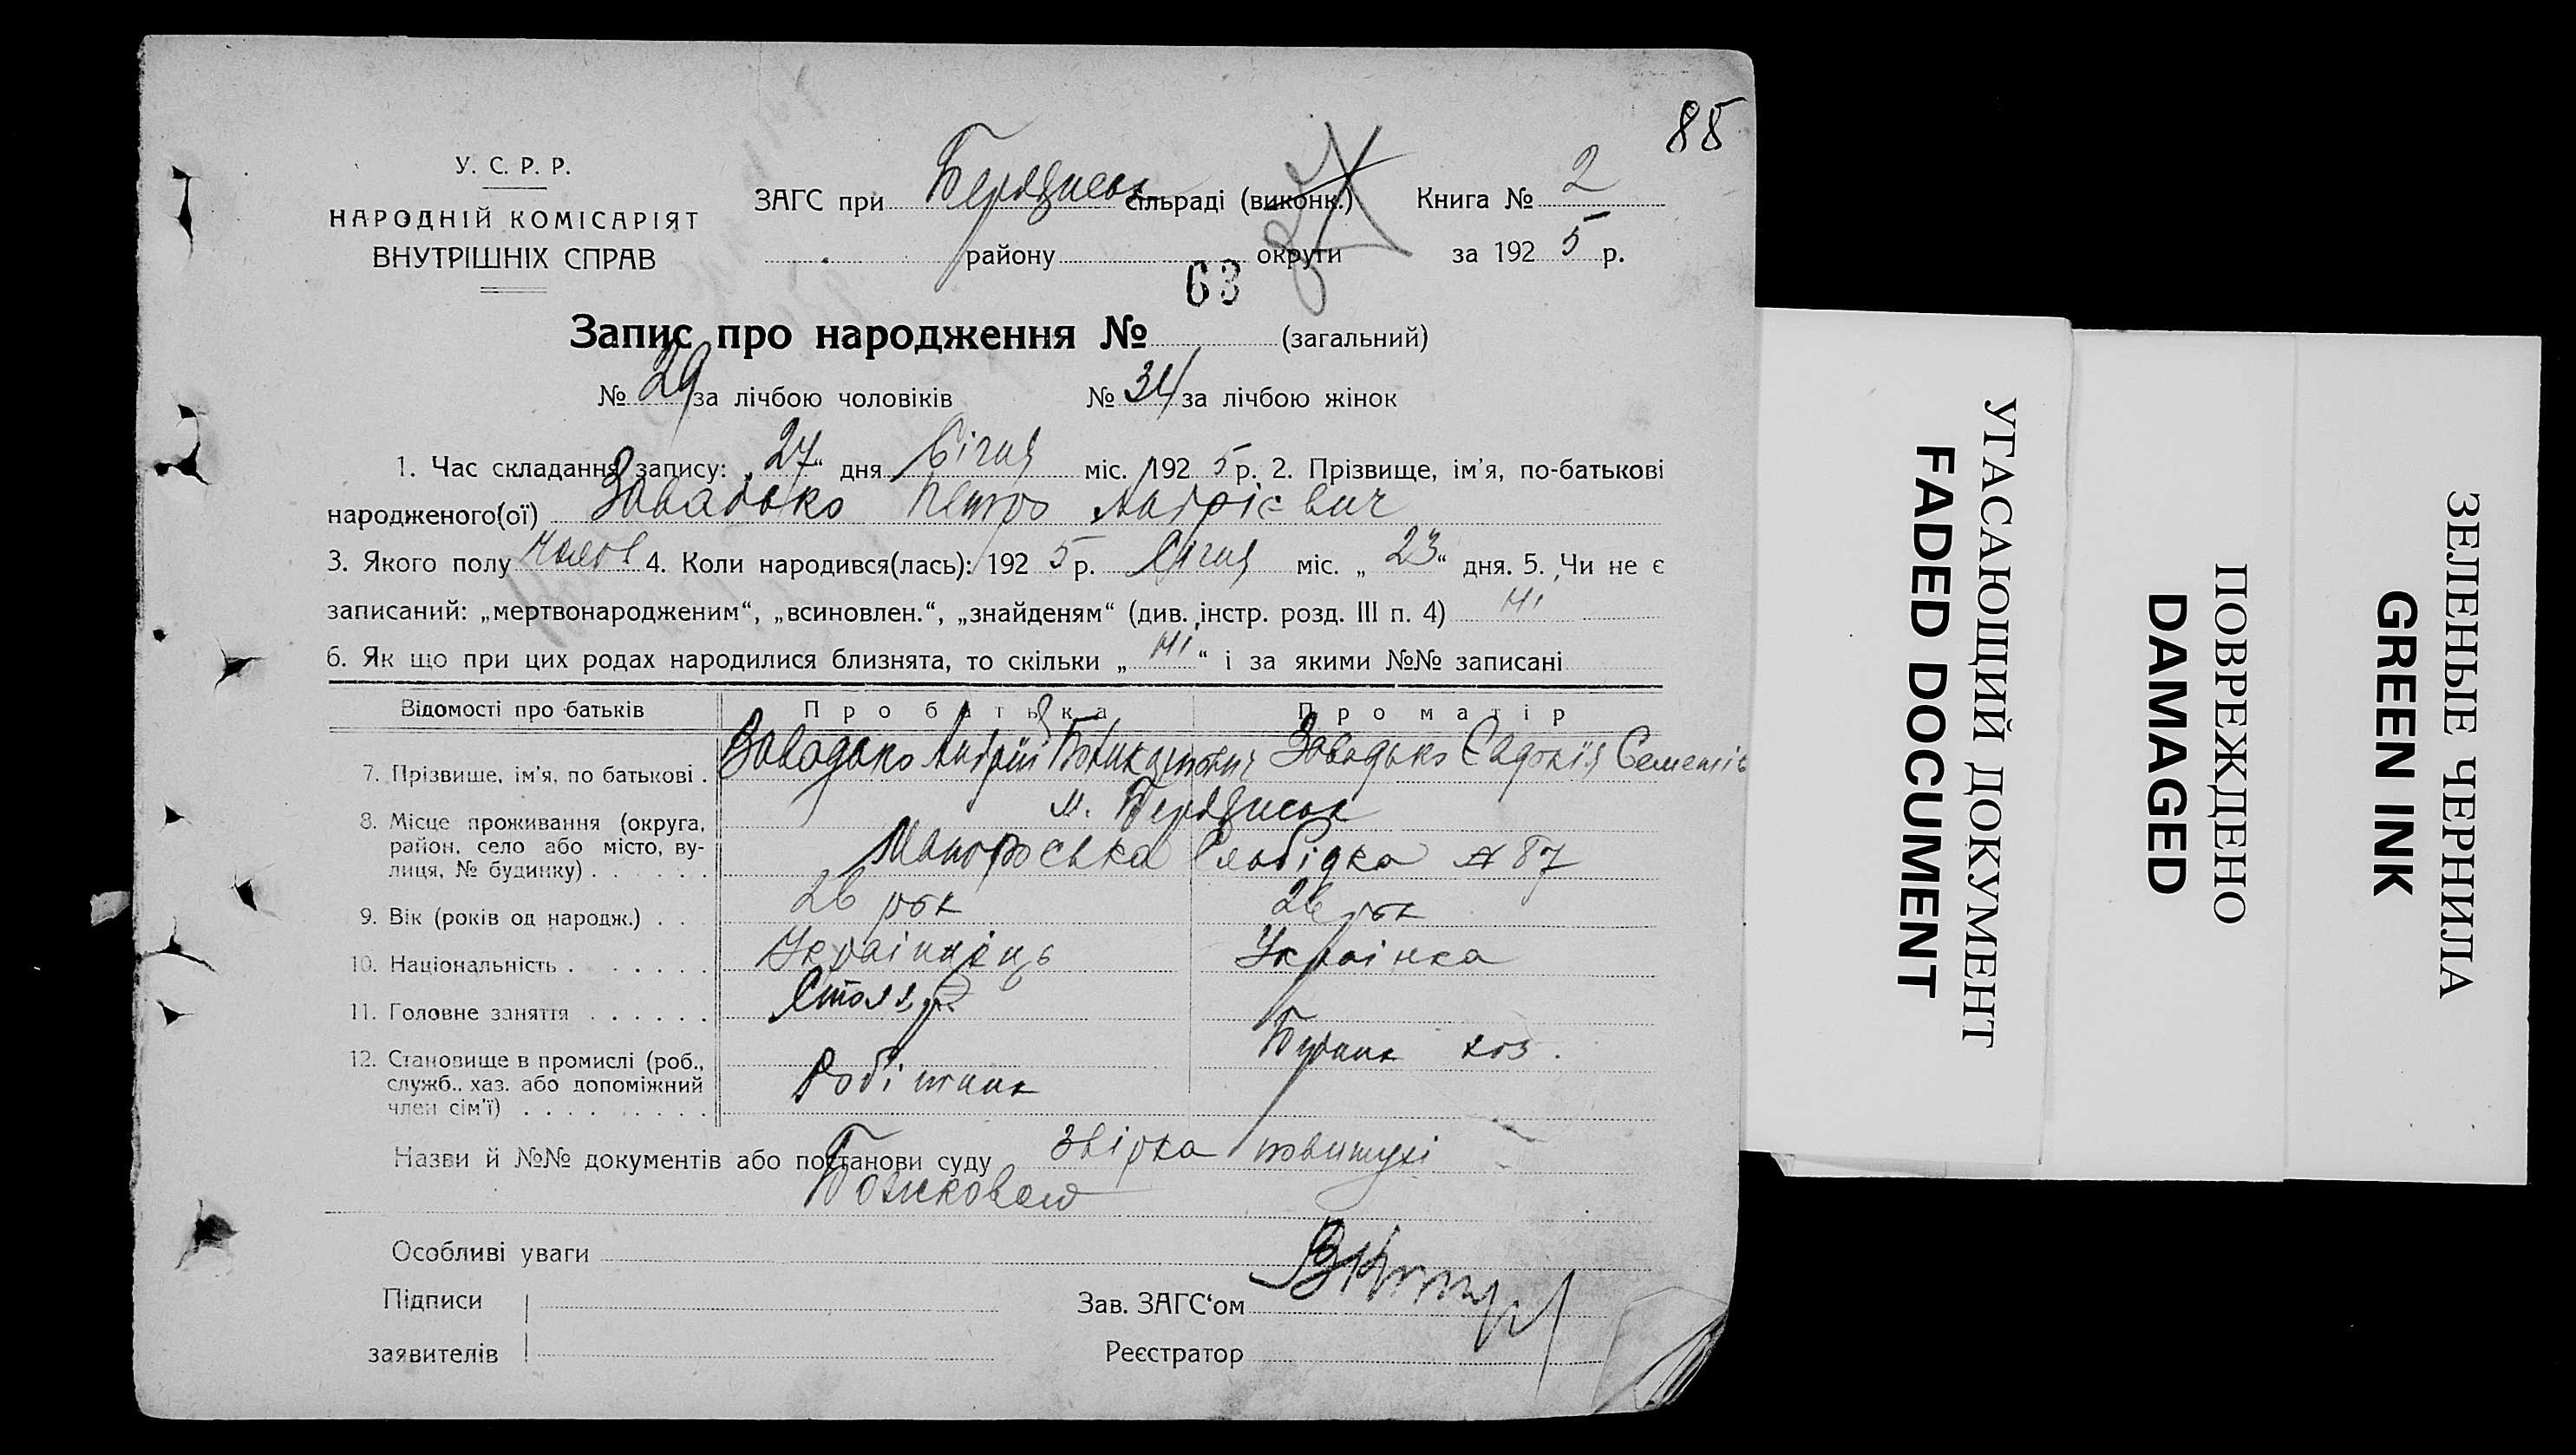 88
У. С. Р. Р.
НАРОДНІЙ КОМІСАРІЯТ
ВНУТРІШНІХ СПРАВ
ЗАГС при сільраді (виконк.) Книга № 2
району округи за 1925 р.
63
Запис про народження № (загальний)
№ 29 за лічбою чоловіків № 34 за лічбою жінок
1. Час складання запису: „27“ дня Січня міс. 1925 р. 2. Прізвище, ім’я, по-батькові
народженого(ої) Завадько Петро Андрієвич
3. Якого полу Чолов 4. Коли народився(лась): 1925 р. Січня міс. „23“ дня. 5. Чи не є
записаний: „мертвонародженим“, „всиновлен.“, „знайденям“ (див. інстр. розд. III п. 4) Ні
6. Як що при цих родах народилися близнята, то скільки „Ні“ і за якими №№ записані
Відомості про батьків Про батька Про матір
7. Прізвище, ім’я, по батькові . Завадько Андрій Завадько Євдокія Семенів
8. Місце проживання (округа, м.
район, село або місто, ву- Слобідка № 87
лиця, № будинку) . . . . . .
9. Вік (років од народж.) . . 26 рок 26 рок
10. Національність . . . . . . . Українець Українка
11. Головне заняття . . . . . . Столяр
12. Становище в промислі (роб., хоз.
служб., хаз. або допоміжний Робітник
член сім’ї) . . . . . . . . .
Назви й №№ документів або постанови суду Звірка повитухі
Божковою
Особливі уваги
Підписи Зав. ЗАГС‘ом
заявителів Реєстратор
УГАСАЮЩИЙ ДОКУМЕНТ
FADED DOCUMENT
ПОВРЕЖДЕНО
DAMAGED
ЗЕЛЕНЫЕ ЧЕРНИЛА
GREEN INK